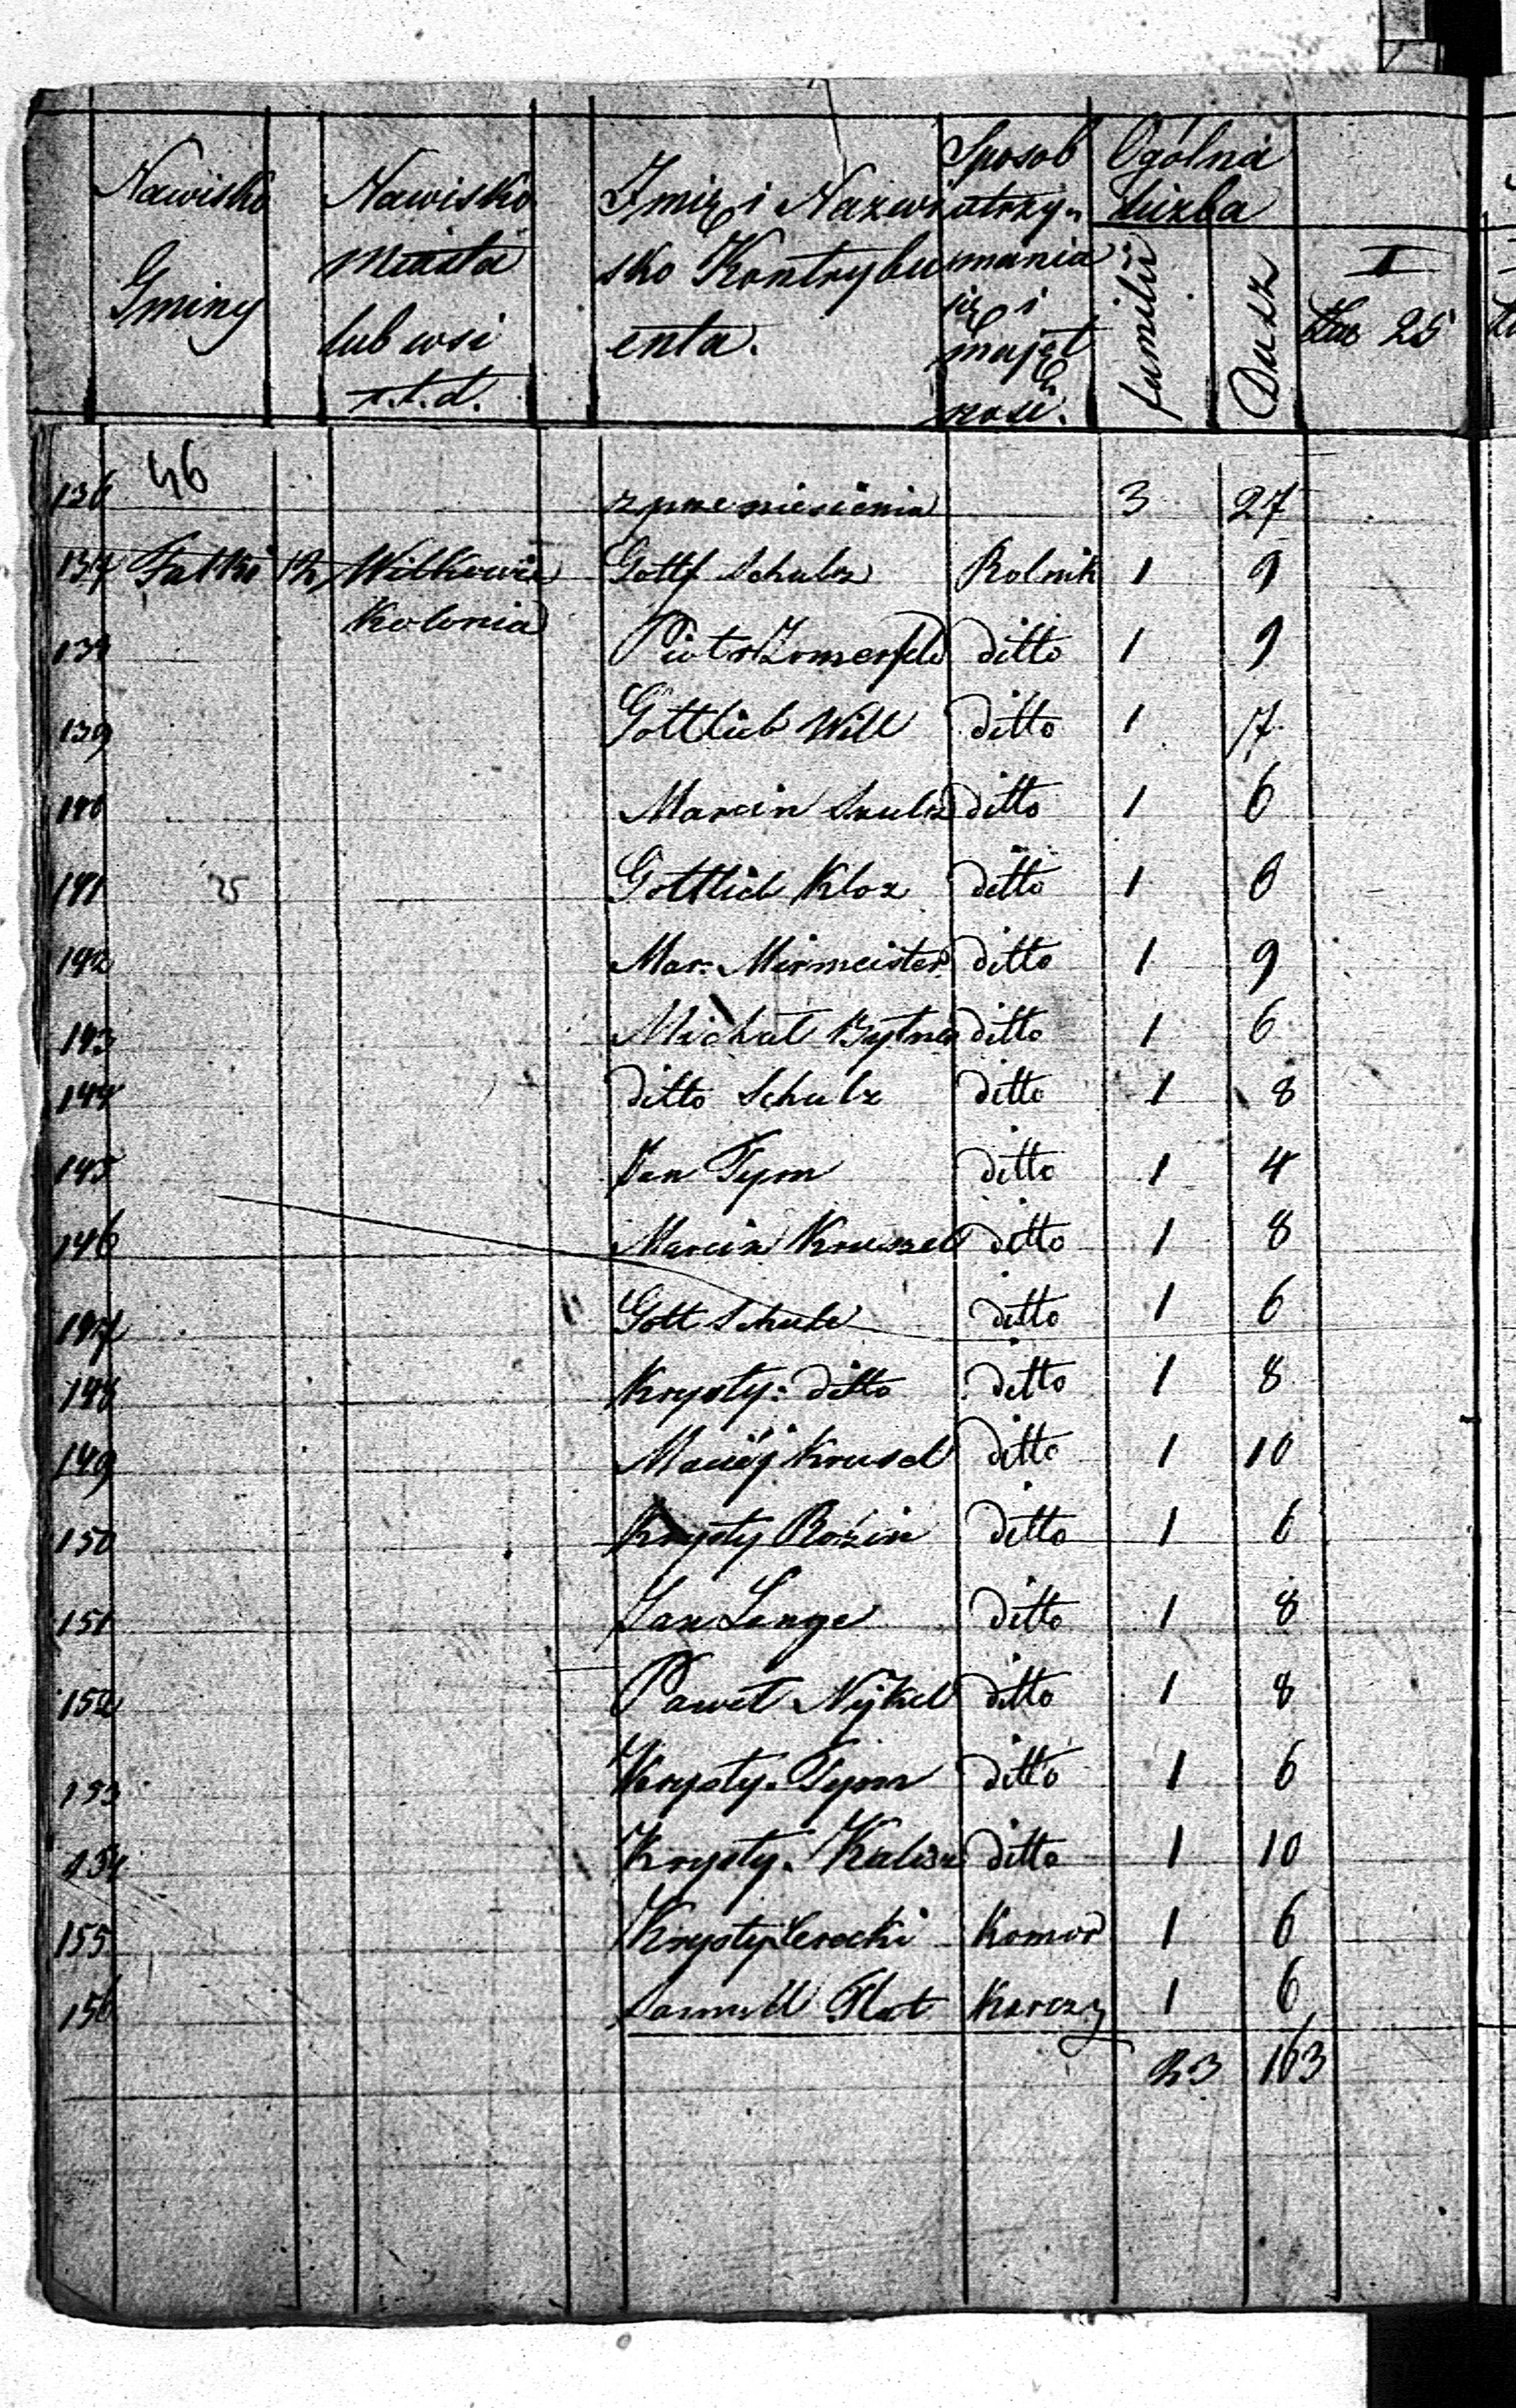 Nawisko Gminy
Nawisko miasta lub wsi t.t.d.
Imię i Nazwisko Kontrybuenta.
Sposob utrzymania się i majętnosci.
Ogólna liczba
familii
Dusz
I
Lit 25
46
136 z przeniesienia 3 27
137 Fałki 12 Witkowice Gottf Schulz Rolnik 1 9
Kolonia
138 Piotr Zomerfeld ditto 1 9
139 Gottlieb Will ditto 1 7
140 Marcin Szulz ditto 1 6
141 25 Gottlieb Kloz ditto 1 6
142 Mar: Mirmeister ditto 1 9
143 Michał Bytner ditto 1 6
144 ditto Schulz ditto 1 8
145 Jan Tym ditto 1 4
146 Marcin Kruszel ditto 1 8
147 Gott Schulz ditto 1 6
148 Krysty: ditto ditto 1 8
149 Maciéj Krusel ditto 1 10
150 Krysty Rozin ditto 1 6
151 Jan Lange ditto 1 8
152 Paweł Nykel ditto 1 8
153 Krysty. Tym ditto 1 6
154 Krysty. Kalisz ditto 1 10
155 Krysty Cerocki Komor 1 6
156 Samuel Flat Karczy 1 6
23 163